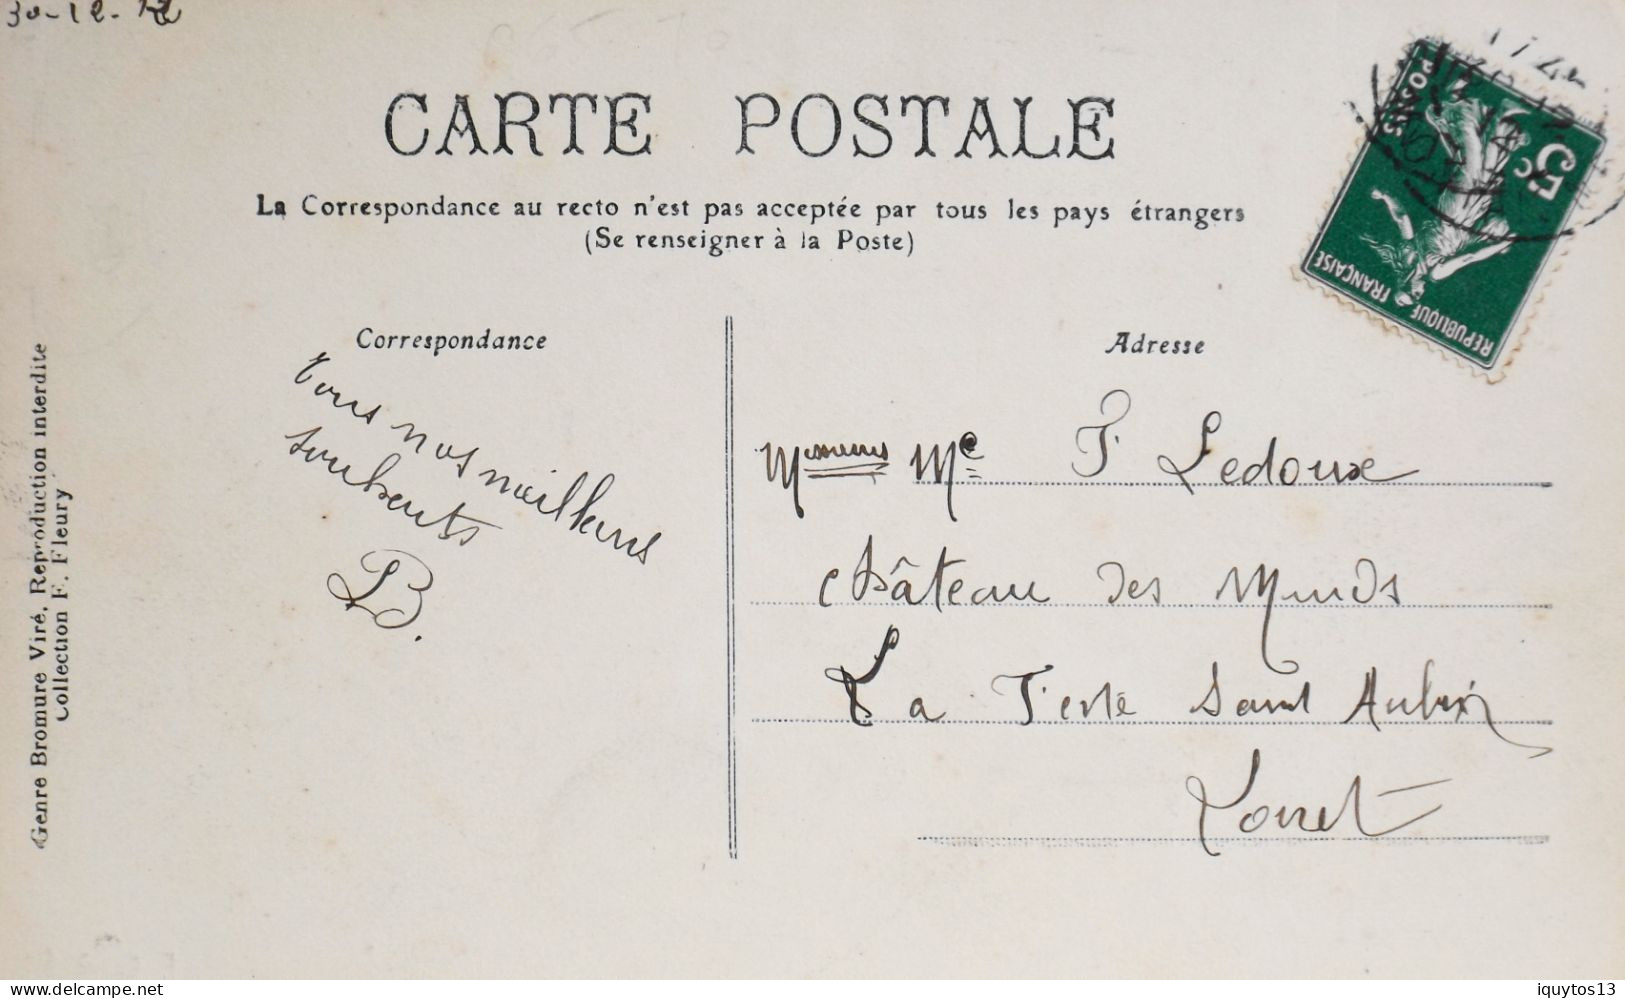 30-12-12
CARTE POSTALE
La Correspondance au recto n'est pas acceptée par tous les pays étrangers
(Se renseigner à la Poste)
POSTES
5c
REPUBLIQUE FRANÇAISE
Correspondance
Tous nos meilleurs
souhaits
LB.
Adresse
Messieurs Me F Ledoux
Château des Muids
La Ferté Saint Aubin
Loiret
Genre Bromure Viré, Reproduction interdite
Collection F. Fleury
delcampe.net
iquytos13